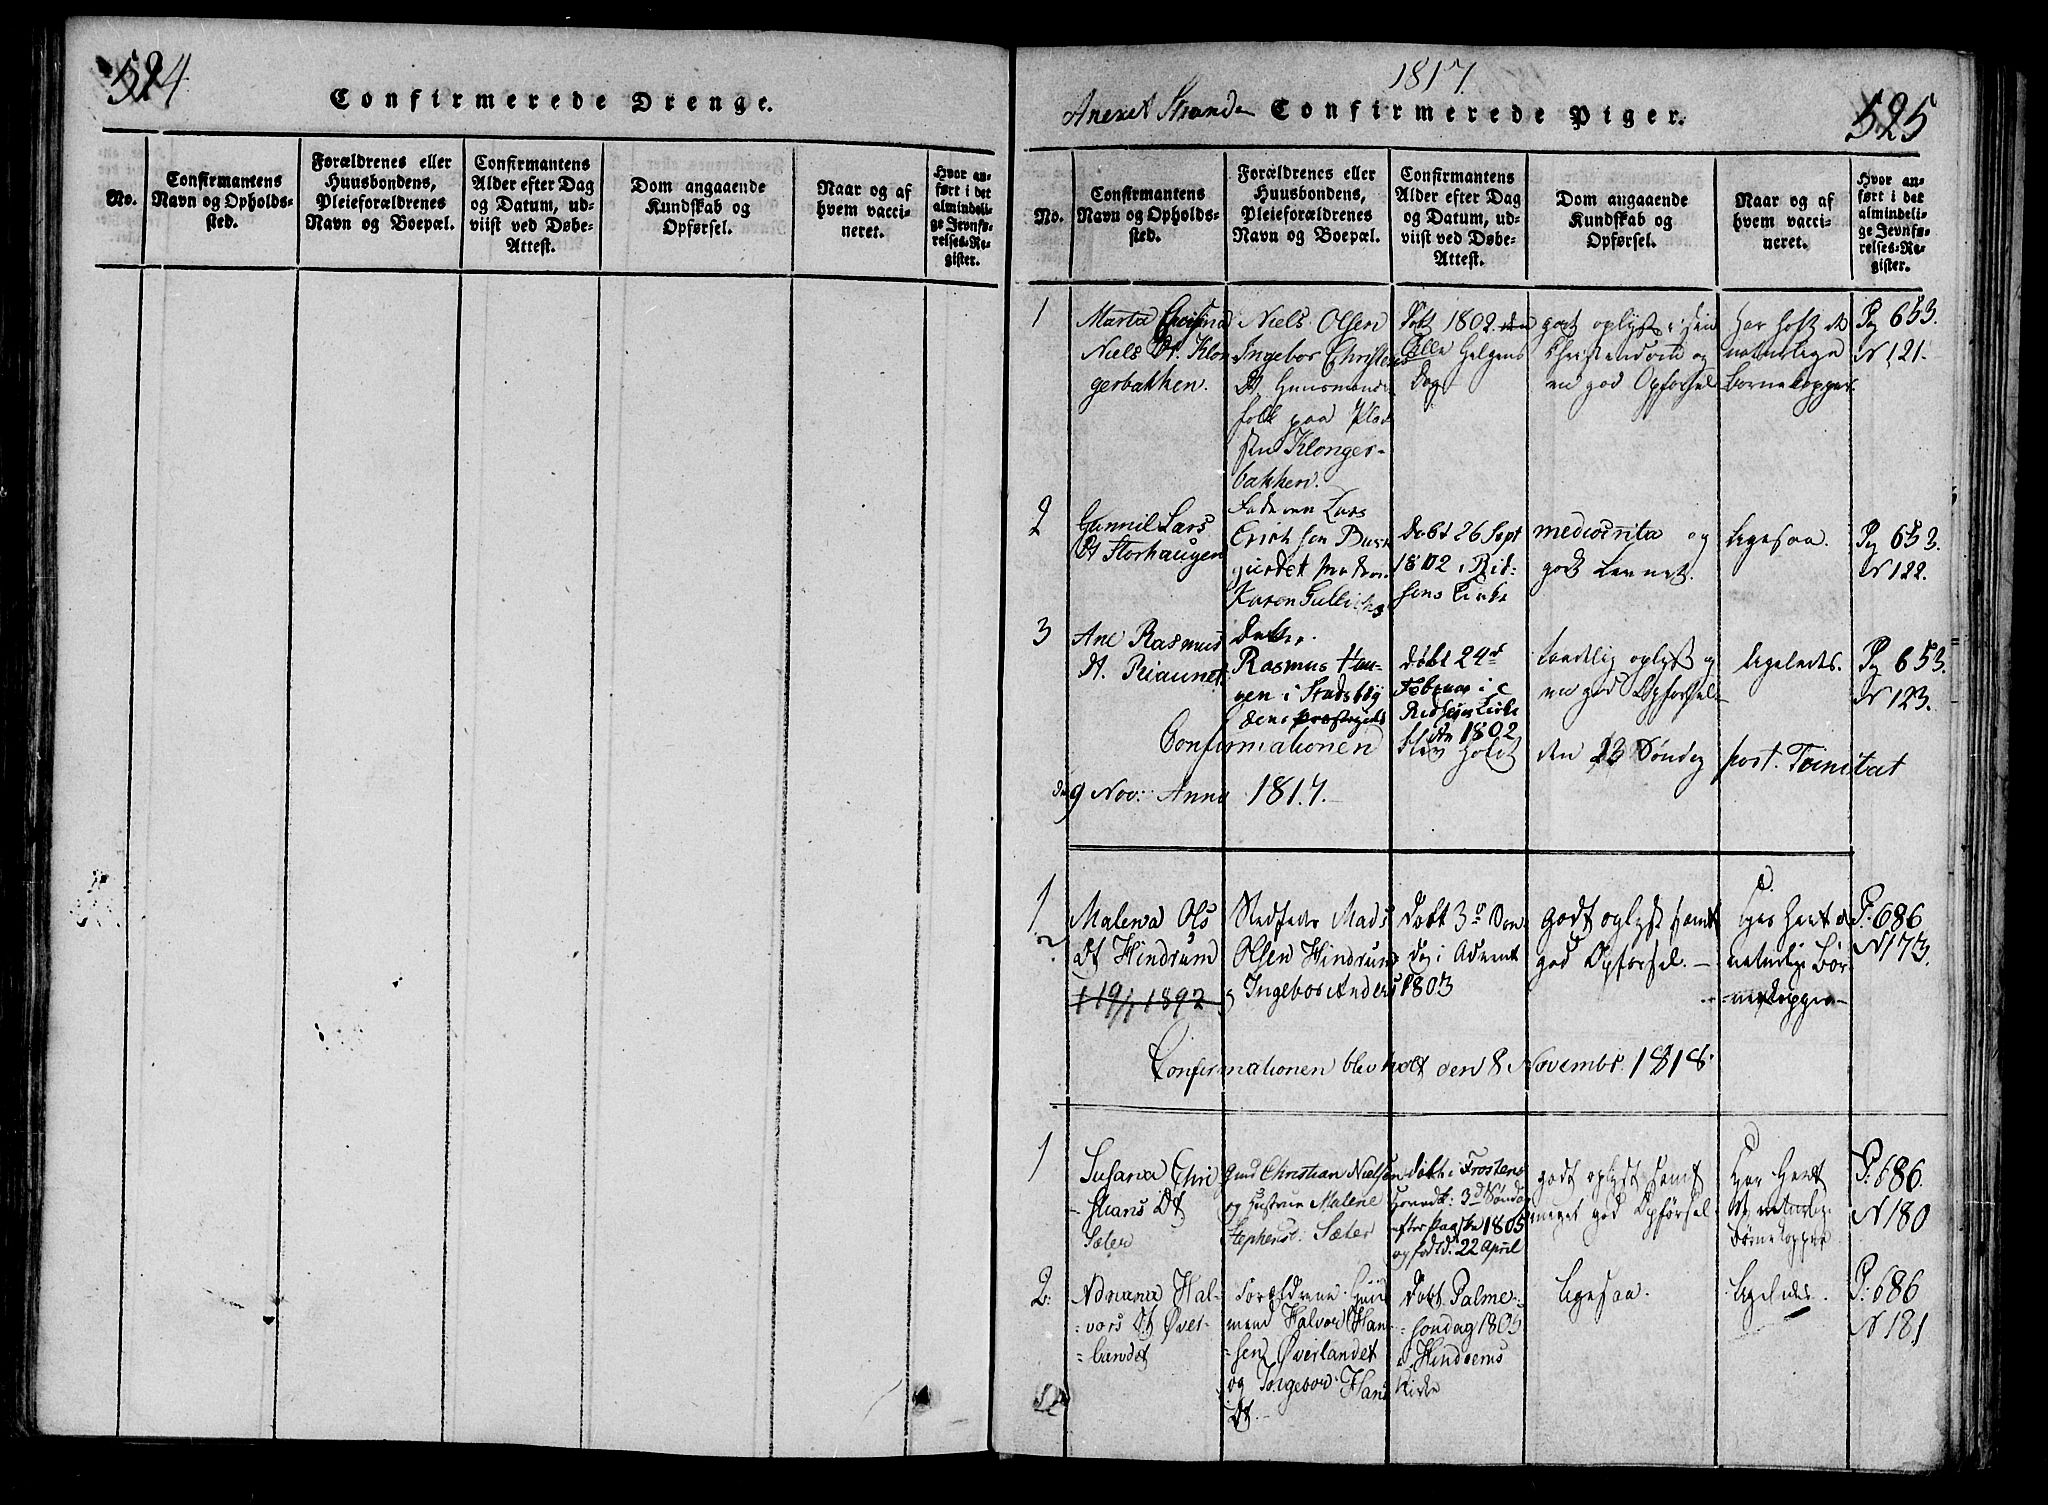 524
Confirmerede Drenge.
No.
Confirmantens
Navn og Opholds-
sted.
Forældrenes eller
Huusbondens,
Pleieforældrenes
Navn og Boepæl.
Confirmantens
Alder efter Dag
og Datum, ud-
viist ved Døbe-
Attest.
Dom angaaende
Kundskab og
Opførsel.
Naar og af
hvem vacci-
neret.
Hvor an-
ført i det
almindeli-
ge Jevnfø-
relses-Re-
gister.
1817
525
Anexet Stranden Confirmerede Piger.
No.
Confirmantens
Navn og Opholds-
sted.
Forældrenes eller
Huusbondens,
Pleieforældrenes
Navn og Boepæl.
Confirmantens
Alder efter Dag
og Datum, ud-
viist ved Døbe-
Attest.
Dom angaaende
Kundskab og
Opførsel.
Naar og af
hvem vacci-
neret.
Hvor an-
ført i det
almindeli-
ge Jevnfø-
relses-Re-
gister.
1
Marta
Niels Dt. Klon
gerbakken.
Niels Olsen
Ingebor Christens
Dt. Huusmands
folk paa Plad
sen Klonger-
bakken.
Døbt 1802
Alle Helgens
Dag
godt oplyst i sin
Christendom og
en god Opførsel
har haft de
naturlige
Børnekopper.
Pg 653.
N 121.
2
Gunnil Lars
Dt Storhaugen
Faderen Lars
Erichsen
moderen
Karen Gullichs
datter.
Døbt 26 Sept
1802 i Rid-
sens Kirke
mediocrita og
godt Levnet.
ligesaa.
Pg 653.
N 122.
3
Ane Rasmus
Dt. Reiaunet.
Rasmus Hau-
gen i Stadsbyg
dens præstegield
Døbt 24d
Februar i
Kirke
An 1802
taalelig oplyst og
en god Opførsel
ligeledes.
Pg 653.
N 123.
Confirmationen blev holdt den 23 Søndag post. Trinitat
den 9 Nov: Anno 1817.
1
Malena Ols
Dt Hindrum
† 19/1 1892
Stedfader Mads
Olsen Hindrum
Ingebor Anders
Døbt 3d Søn
dag i Advent
1803
godt oplyst samt
god Opførsel.
har havt de
naturlige Bør
nekopper
P. 686
N 173.
Confirmationen blev holt den 8 Novembr. 1818.
1
Susana Chri
stians Dt
Sæter
Christian Nielsen
og Hustrue Malene
Stephensd: Sæter
døbt i Frostens
Hovedk: 3d Søndag
efter Paaske 1805
og født d. 22 April
godt oplyst samt
meget god Opførsel
Har havt
de naturlige
Børnekopper
P. 686.
N 180
2.
Adriana Hal-
vors Dt Øver-
landet
Forældrene Huus
mand Halvor Han-
sen Øverlandet
og Ingebor Hans
Dt.
Døbt Palme-
søndag 1805
i Hindrems
Kirke
ligesaa.
ligeledes.
P. 686
N 181